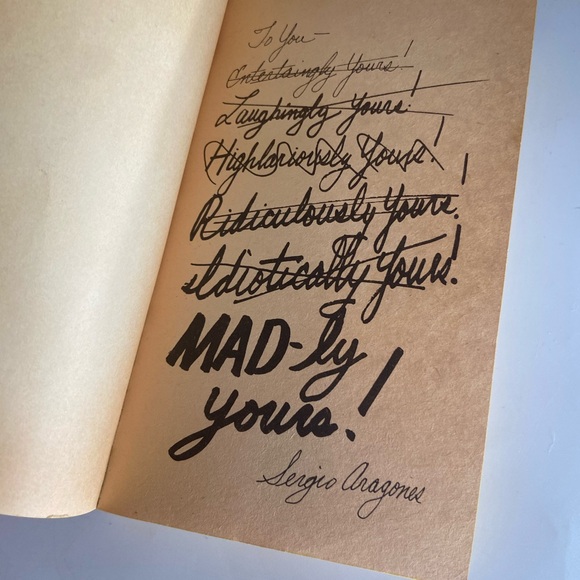 To You—
Entertaingly Yours!
Laughingly Yours!
Highlariously Yours!
Ridiculously Yours!
Idiotically Yours!
MAD-ly
yours!
Sergio Aragones